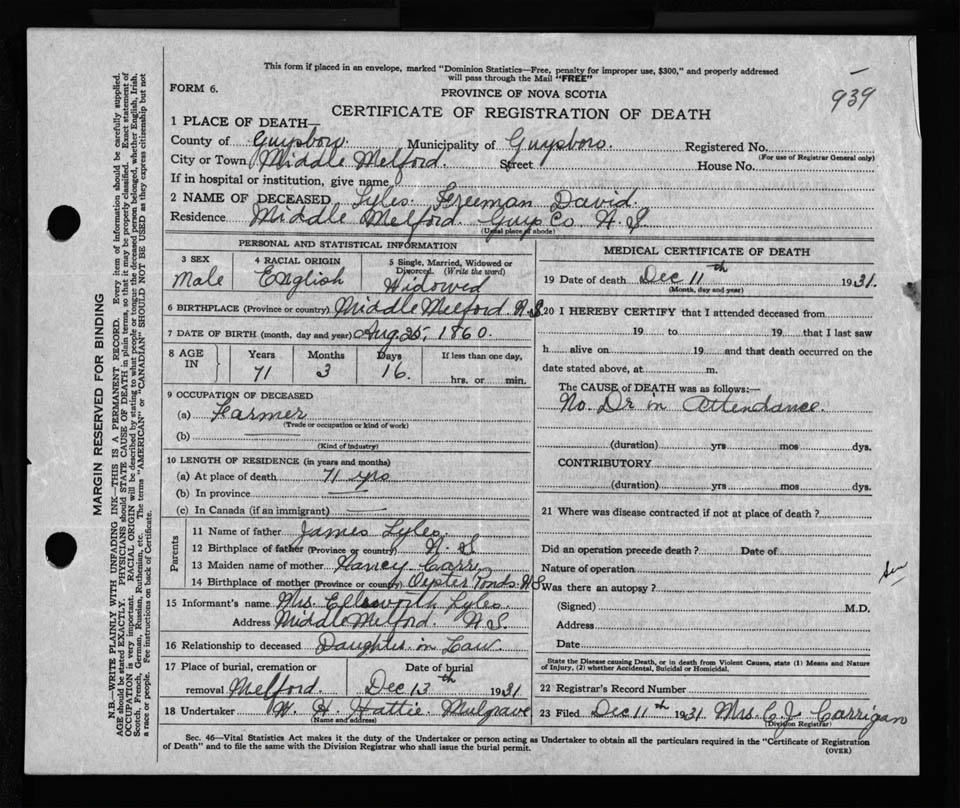 This form if placed in an envelope, marked "Dominion Statistics—Free, penalty for improper use, $300," and properly addressed
will pass through the Mail "FREE"
FORM 6.
PROVINCE OF NOVA SCOTIA
939
CERTIFICATE OF REGISTRATION OF DEATH
1 PLACE OF DEATH—
County of Guysboro Municipality of Guysboro. Registered No.
(For use of Registrar General only)
City or Town Middle Melford. Street House No.
If in hospital or institution, give name
2 NAME OF DECEASED Lyles Freeman David.
Residence Middle Melford Guys Co N.S.
(Usual place of abode)
PERSONAL AND STATISTICAL INFORMATION
3 SEX 4 RACIAL ORIGIN 5 Single, Married, Widowed or
Divorced. (Write the word)
Male English Widowed
6 BIRTHPLACE (Province or country) Middle Melford. N.S.
7 DATE OF BIRTH (month, day and year) Aug. 25, 1860.
8 AGE IN Years Months Days If less than one day,
71 3 16. hrs. or min.
9 OCCUPATION OF DECEASED
(a) Farmer
(Trade or occupation or kind of work)
(b)
(Kind of industry)
10 LENGTH OF RESIDENCE (in years and months)
(a) At place of death 71 yrs
(b) In province
(c) In Canada (if an immigrant)
Parents
11 Name of father James Lyles.
12 Birthplace of father (Province or country) N. S.
13 Maiden name of mother Nancy Carr
14 Birthplace of mother (Province or country) Oyster Ponds. N.S.
15 Informant's name Mrs. Ellsworth Lyles.
Address Middle Melford. N.S.
16 Relationship to deceased Daughter in Law.
17 Place of burial, cremation or Date of burial
removal Melford. Dec 13th 1931
18 Undertaker W. H. Hattie Mulgrave
(Name and address)
MEDICAL CERTIFICATE OF DEATH
19 Date of death Dec 11th 1931.
(Month, day and year)
20 I HEREBY CERTIFY that I attended deceased from
19 to 19 that I last saw
h alive on 19 and that death occurred on the
date stated above, at m.
The CAUSE of DEATH was as follows:—
No. Dr in Attendance.
(duration) yrs mos dys.
CONTRIBUTORY
(duration) yrs mos dys.
21 Where was disease contracted if not at place of death?
Did an operation precede death? Date of
Nature of operation
Was there an autopsy?
(Signed) M.D.
Address
Date
State the Disease causing Death, or in death from Violent Causes, state (1) Means and Nature
of Injury, (2) whether Accidental, Suicidal or Homicidal.
22 Registrar's Record Number
23 Filed Dec 11th 1931 Mrs C. J. Carrigan
(Division Registrar)
Sec. 46—Vital Statistics Act makes it the duty of the Undertaker or person acting as Undertaker to obtain all the particulars required in the "Certificate of Registration
of Death" and to file the same with the Division Registrar who shall issue the burial permit.
(OVER)
MARGIN RESERVED FOR BINDING
N.B.—WRITE PLAINLY WITH UNFADING INK—THIS IS A PERMANENT RECORD. Every item of information should be carefully supplied.
AGE should be stated EXACTLY. PHYSICIANS should STATE CAUSE OF DEATH in plain terms, so that it may be properly classified. Exact statement of
OCCUPATION is very important. RACIAL ORIGIN will be described by stating to what people or tongue the deceased person belonged, whether English, Irish,
Scotch, French, German, Russian, Ruthenian, etc. The terms "AMERICAN" or "CANADIAN" SHOULD NOT BE USED as they express citizenship but not
a race or people. Fee instructions on back of Certificate.